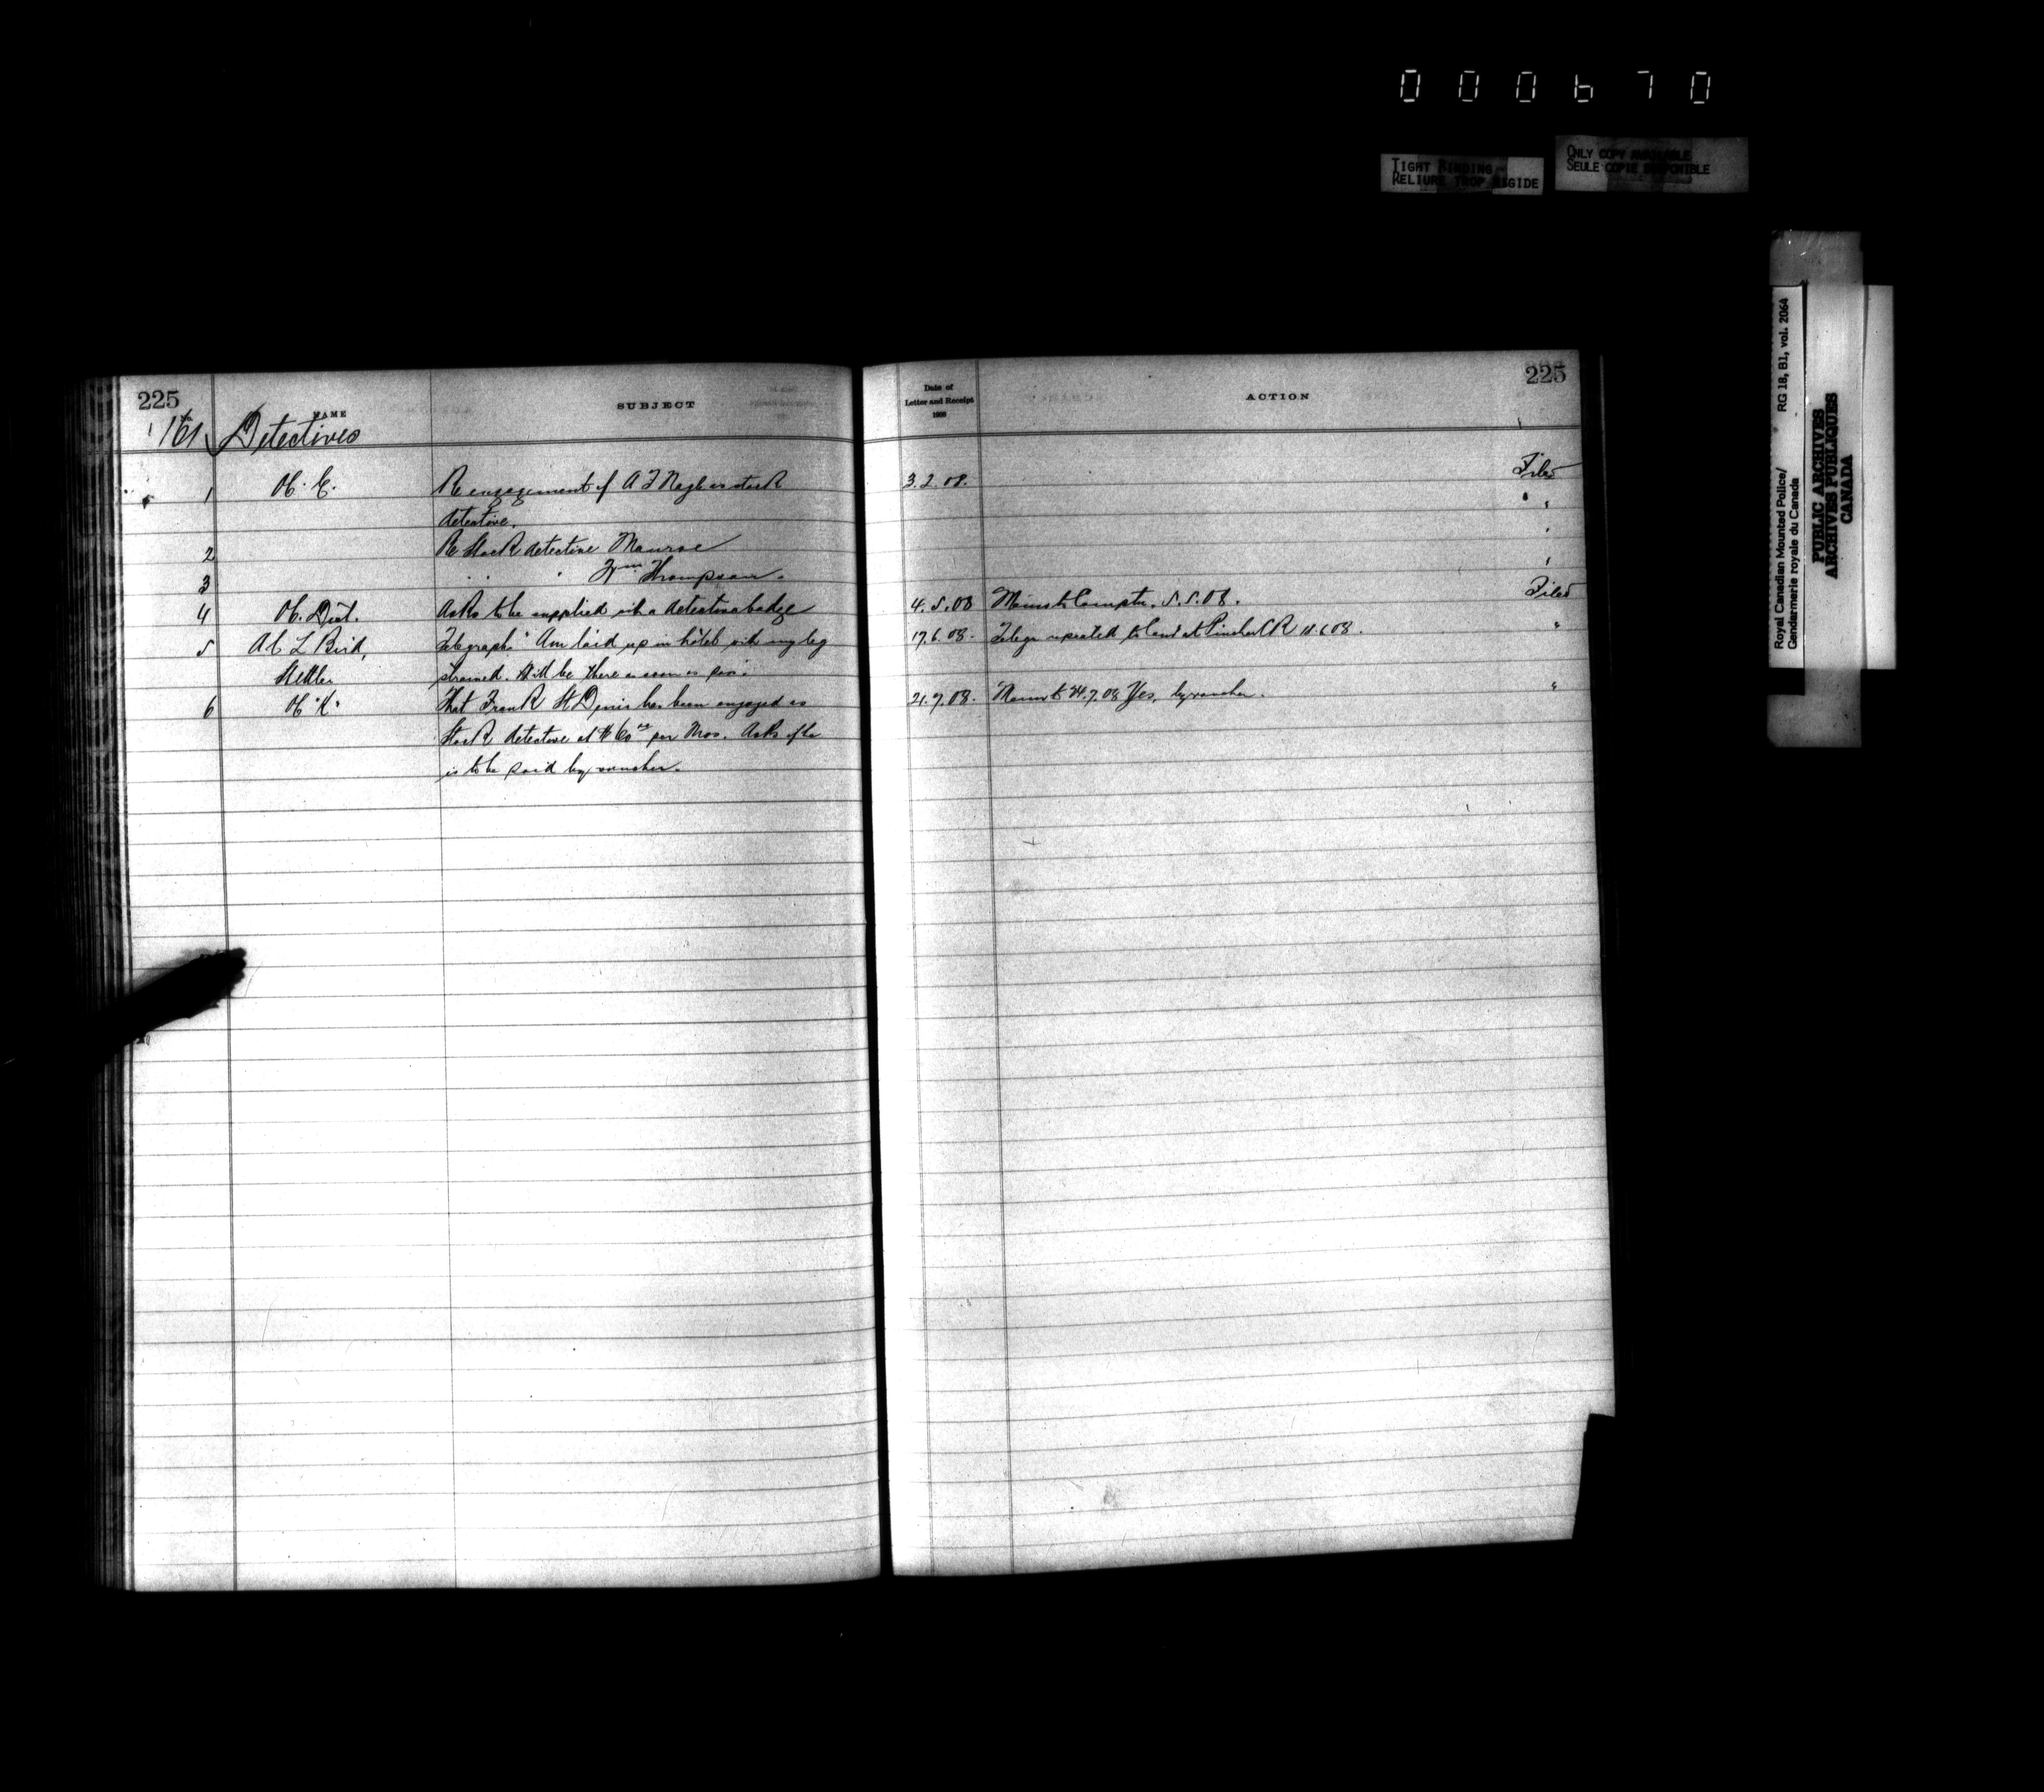 000670
TIGHT BINDING
RELIURE TROP RIGIDE
ONLY COPY AVAILABLE
SEULE COPIE DISPONIBLE
Royal Canadian Mounted Police/
Gendarmerie royale du Canada
RG 18, B1, vol. 2064
PUBLIC ARCHIVES
ARCHIVES PUBLIQUES
CANADA
225
NAME
SUBJECT
Date of
Letter and Receipt
1908
ACTION
225
161 Detectives
1 Re engagement of A F Nagle as stock 3.2.08. Filed
detective. "
2 Re Stock detective Monroe "
3 " " " Wm Thompson. "
4 Asks to be supplied with a detectives badge 4.5.08 Minister Comptr. 5.5.08. Filed
5 L Bird, Telegraphs "Am laid up in hotel with my leg 17.6.08. repeated to at Pincher CR "
Stettler strained. Will be there as soon as pos."
6 That Frank St Denis has been engaged as 21.7.08. 24.7.08 Yes, by voucher. "
Stock detective at $60 00 per Mos. Asks if he
is to be paid by voucher.